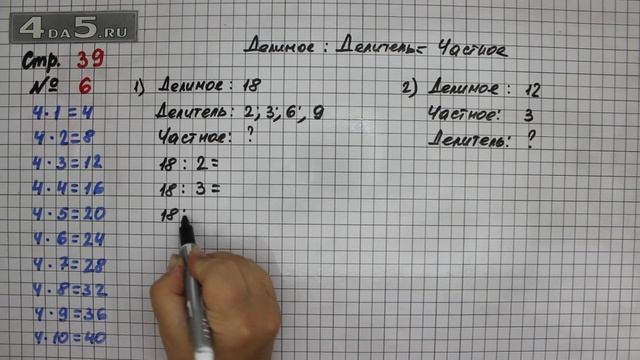 4DA5.RU
Стр. 39
№ 6
4·1=4
4·2=8
4·3=12
4·4=16
4·5=20
4·6=24
4·7=28
4·8=32
4·9=36
4·10=40
Делимое : Делитель= Частное
1) Делимое : 18
Делитель: 2; 3; 6; 9
Частное: ?
18 : 2=
18 : 3=
18:
2) Делимое : 12
Частное: 3
Делитель: ?